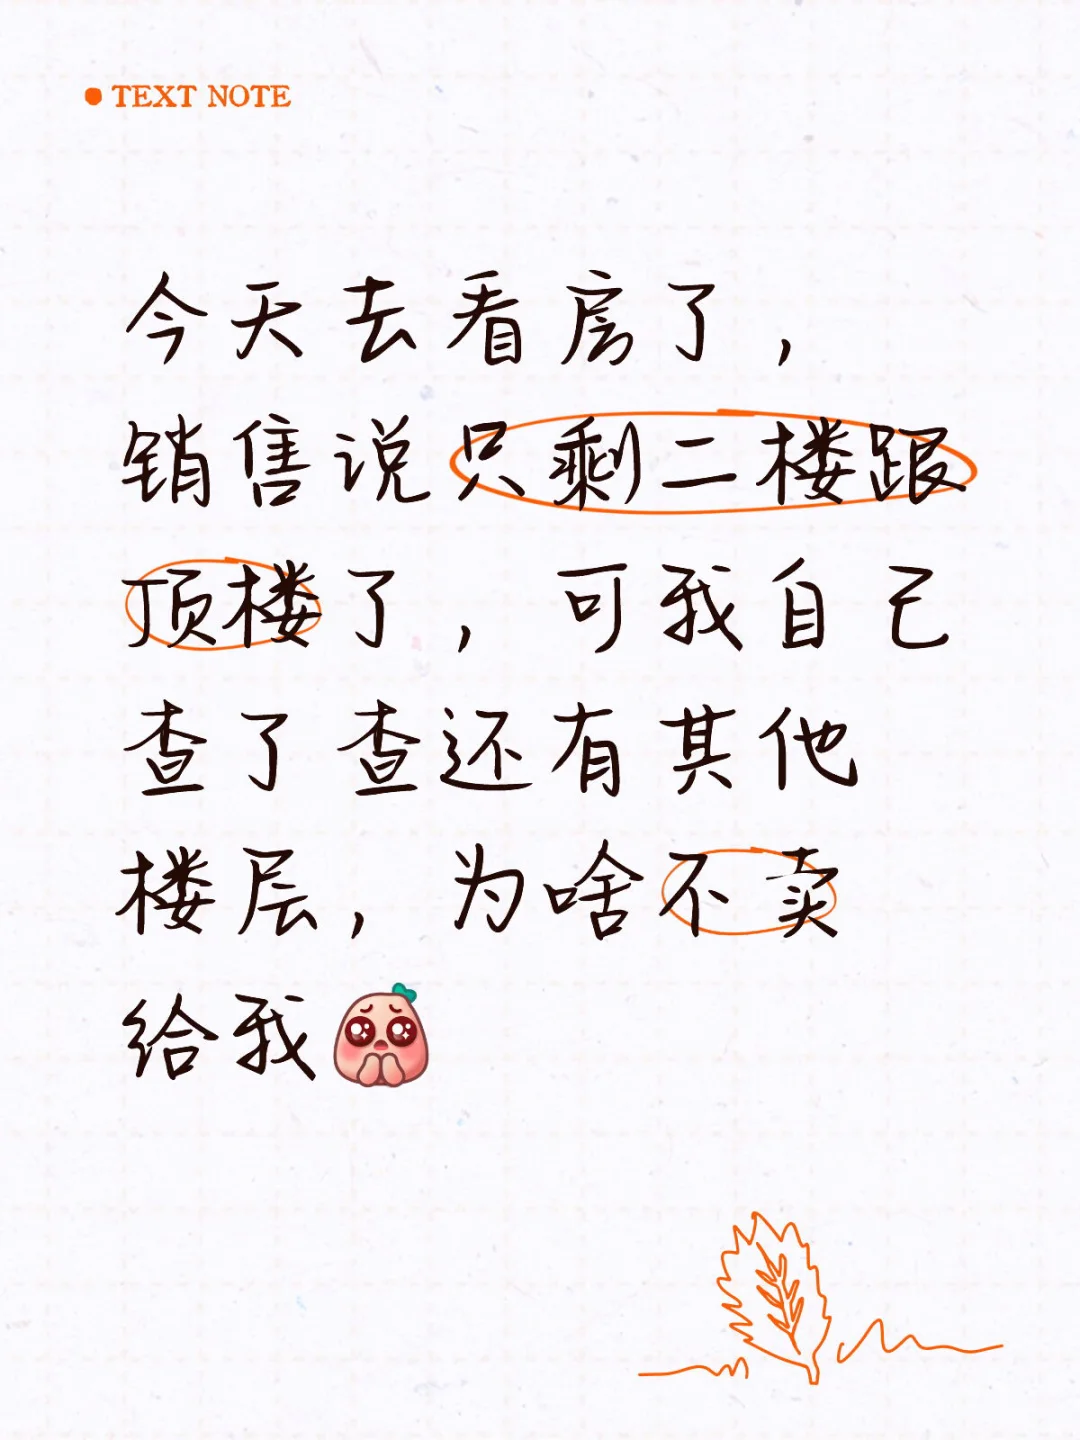 TEXT NOTE
今天去看房了，
销售说只剩二楼跟
顶楼了，可我自己
查了查还有其他
楼层，为啥不卖
给我